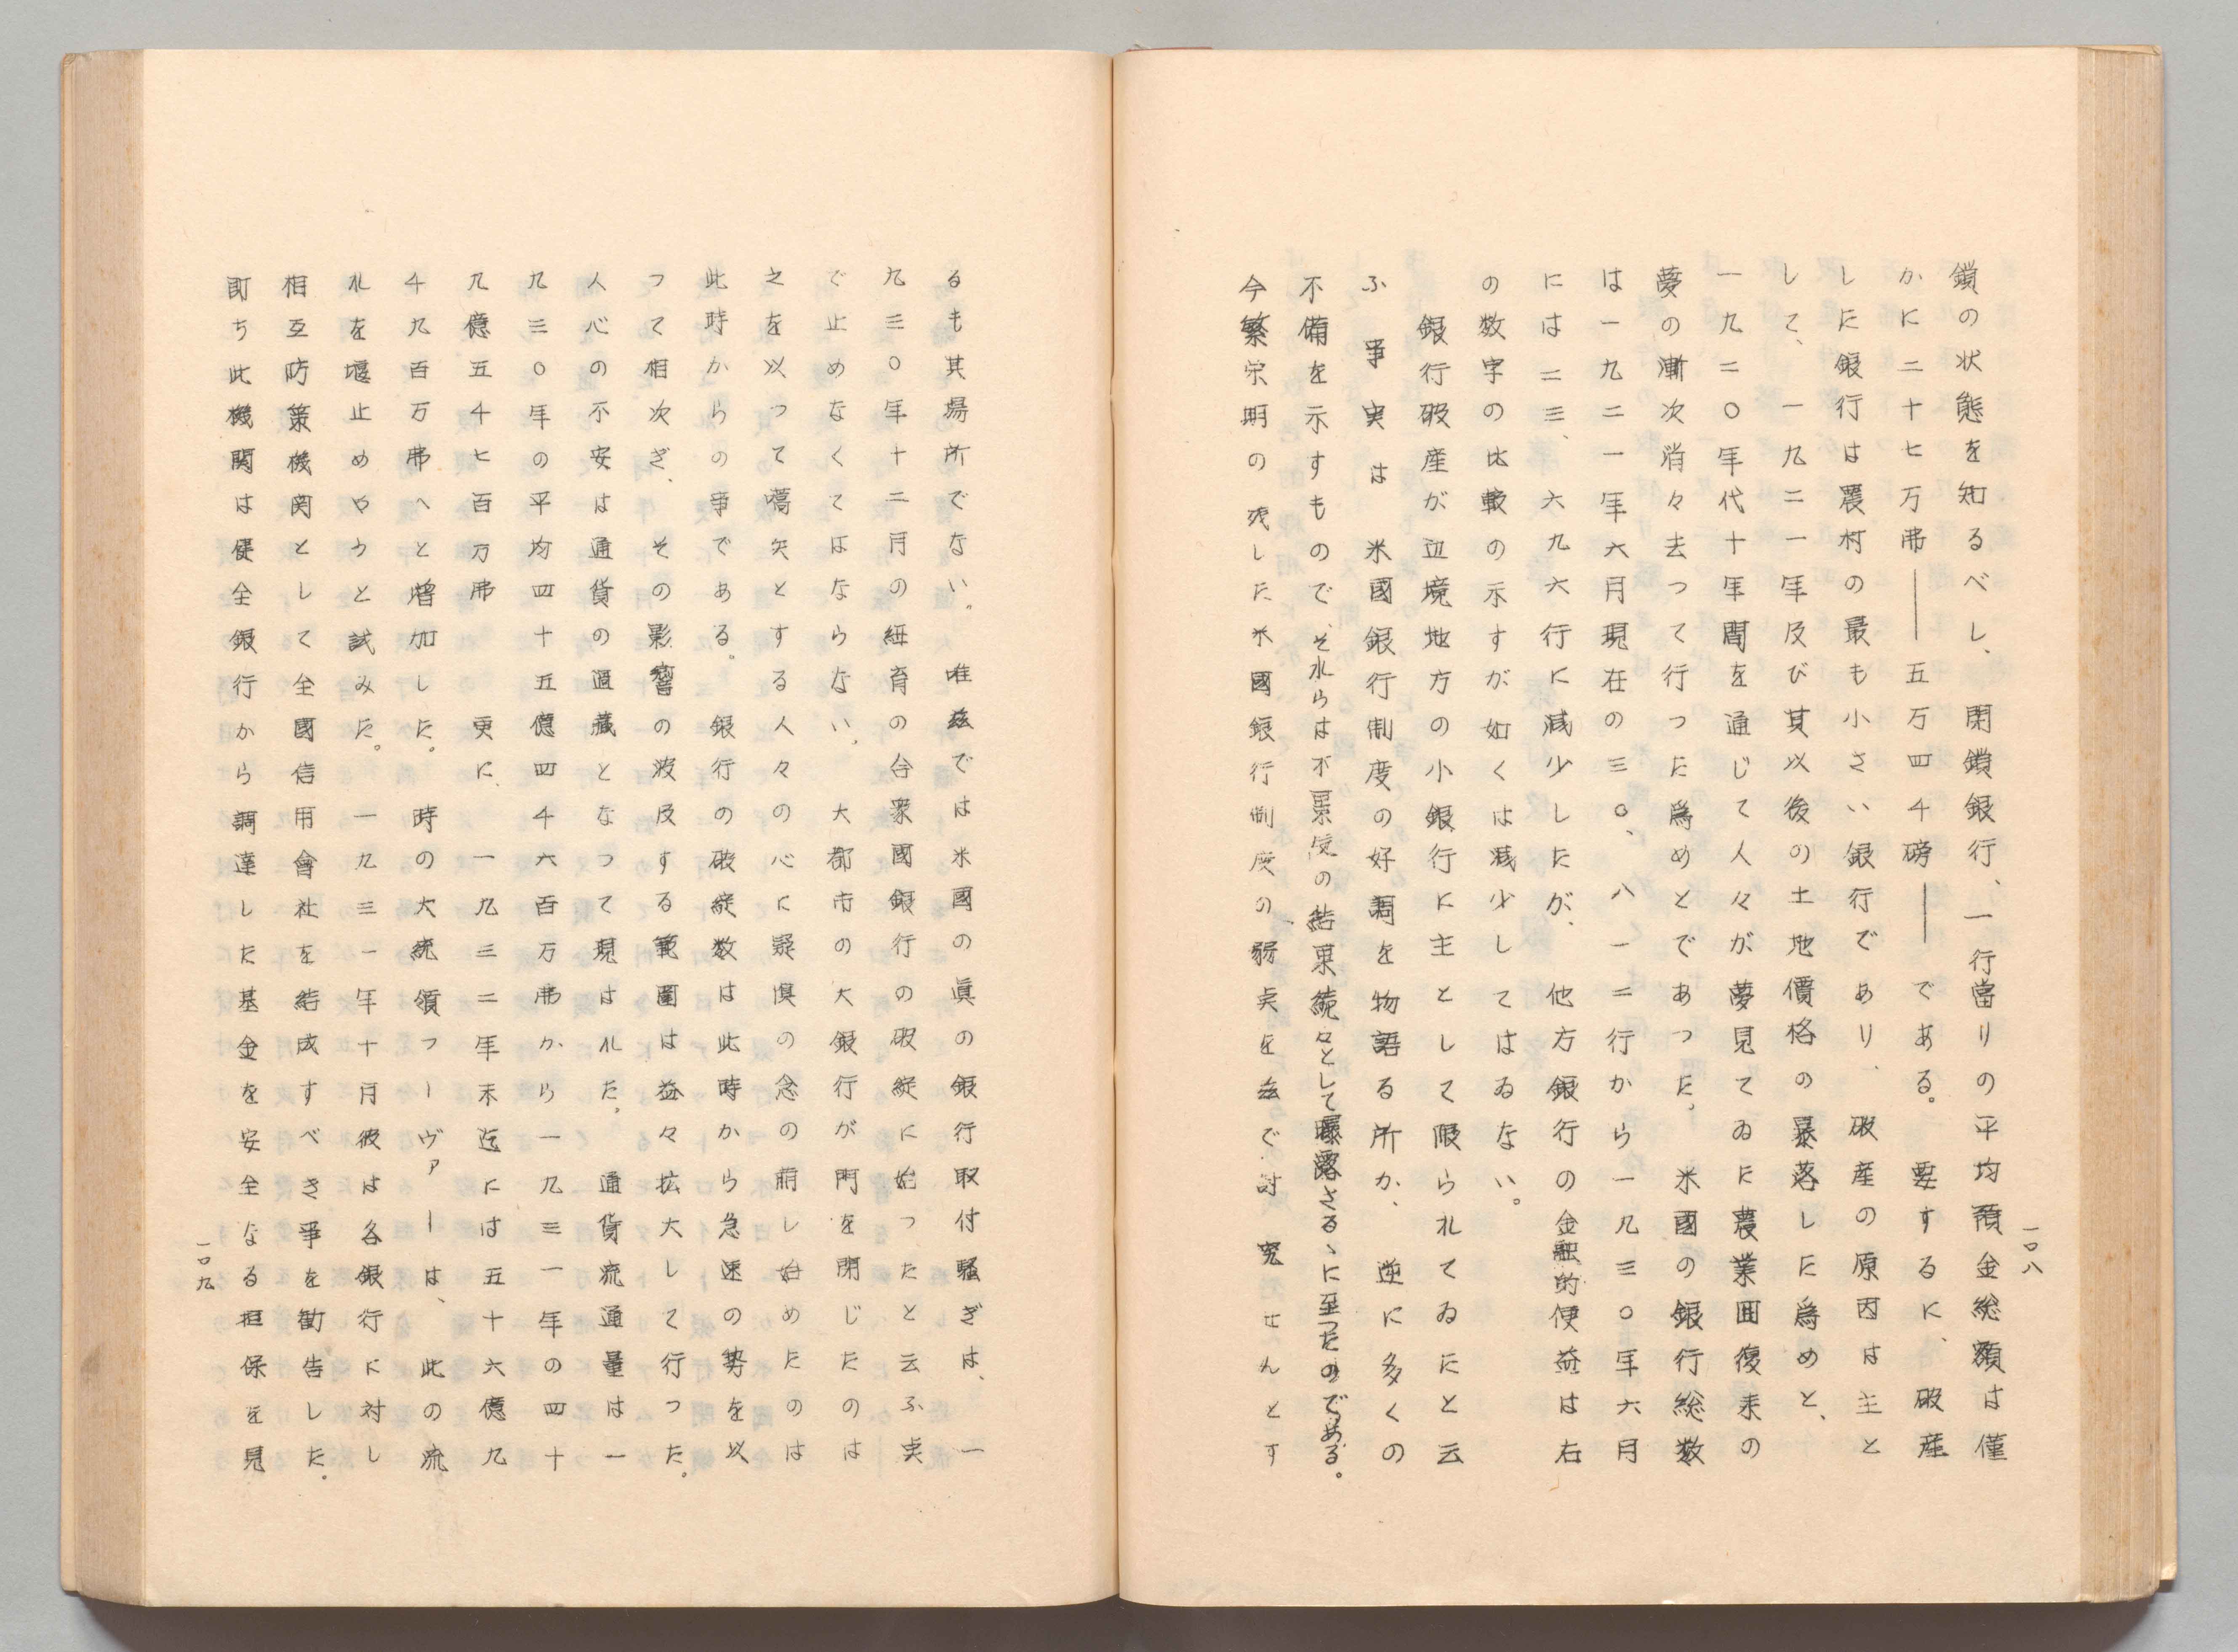 一〇八
鎖の状態を知るべし、閉鎖銀行、一行當りの平均預金総額は僅
かに二十七万弗――五万四千磅――である。要するに、破産
した銀行は農村の最も小さい銀行であり、破産の原因は主と
して、一九二一年及び其以後の土地價格の暴落した爲めと、
一九二〇年代十年間を通じて人々が夢見てゐた農業囬復来の
夢の漸次消々去って行った爲めとであった。米國の銀行総数
は一九二一年六月現在の三〇、八一二行から一九三〇年六月
には二三、六九六行に減少したが、他方銀行の金融的便益は右
の数字の比較の示すが如くは減少してはゐない。
銀行破産が辺境地方の小銀行に主として限られてゐたと云
ふ事実は米國銀行制度の好調を物語る所か、逆に多くの
不備を示すもので、それらは不景気の結果続々として曝露さるゝに至ったのである。
今繁栄期の残した米國銀行制度の、弱点を茲で討究せんとす
るも其場所でない。唯茲では米國の眞の銀行取付騒ぎは、一
九三〇年十二月の紐育の合衆國銀行の破綻に始ったと云ふ点
で止めなくてはならない。大都市の大銀行が門を閉じたのは
之を以って嚆矢とする人々の心に疑惧の念の萠し始めたのは
此時からの事である。銀行の破綻数は此時から急速の勢を以
って相次ぎ、その影響の波及する範圍は益々拡大して行った。
人心の不安は通貨の過藏となって現はれた。通貨流通量は一
九三〇年の平均四十五億四千六百万弗から一九三一年の四十
九億五千七百万弗更に、一九三二年末迄には五十六億九
千九百万弗へと増加した。時の大統領フーヴァーは、此の流
れを堰止めやうと試みた。一九三一年十月彼は各銀行に対し
相互防策機関として全國信用會社を結成すべき事を勧告した。
即ち此機関は健全銀行から調達した基金を安全なる担保を見
一〇九